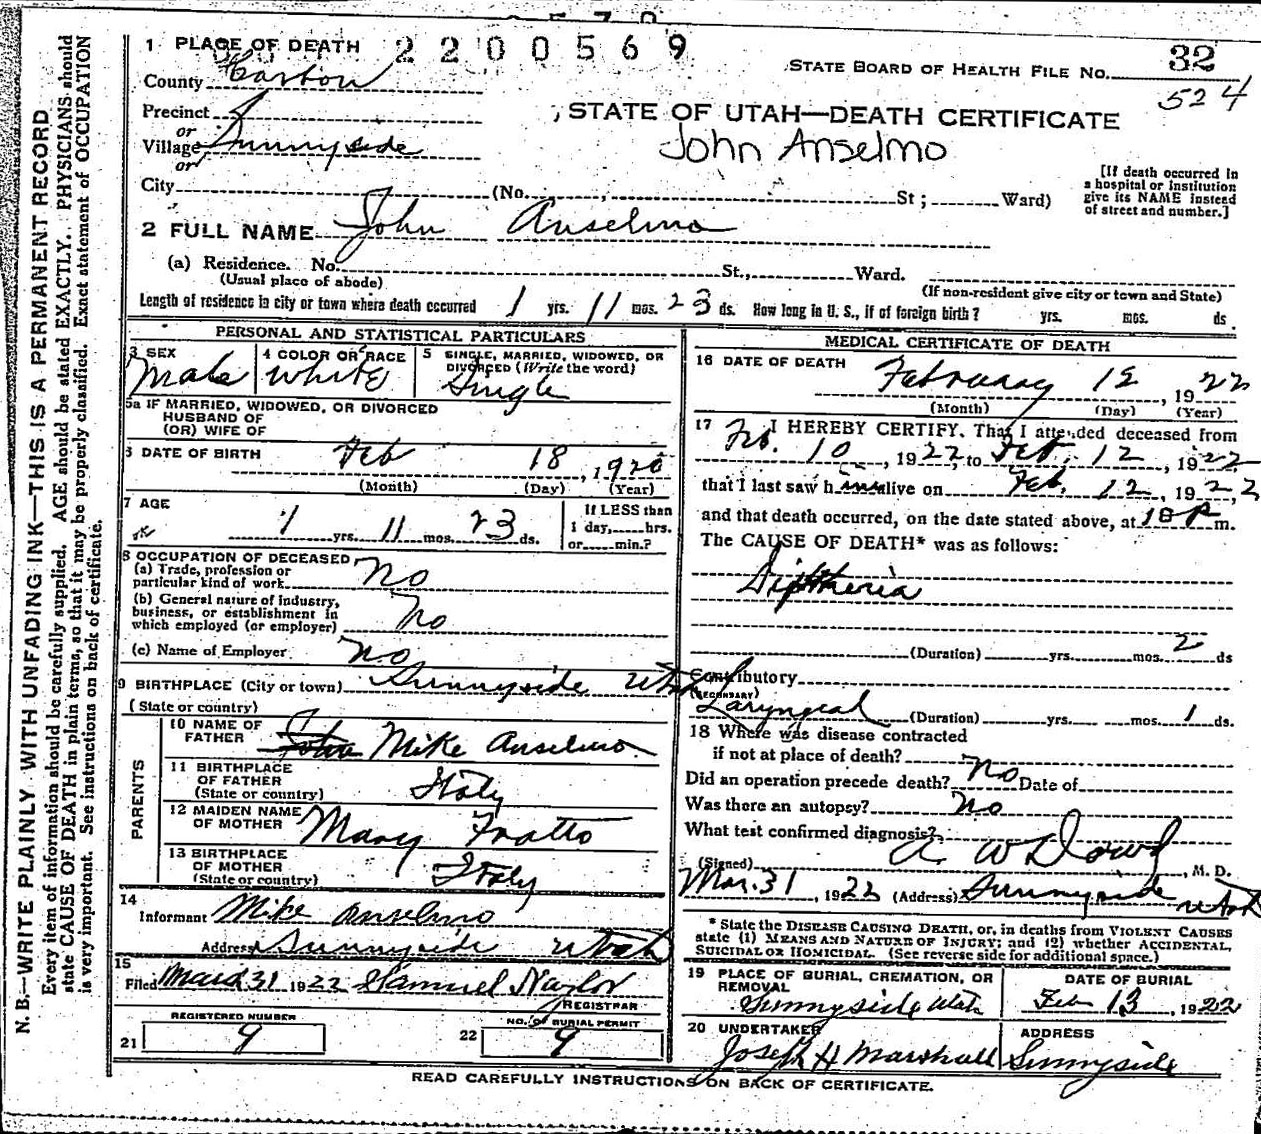 1 PLACE OF DEATH 2200569
STATE BOARD OF HEALTH FILE NO. 32
524
County Carbon
Precinct
or
Village Sunnyside
or
City (No. St ; Ward)
STATE OF UTAH—DEATH CERTIFICATE
John Anselmo
[If death occurred in
a hospital or institution
give its NAME instead
of street and number.]
2 FULL NAME John Anselmo
(a) Residence. No. St., Ward.
(Usual place of abode)
(If non-resident give city or town and State)
Length of residence in city or town where death occurred 1 yrs. 11 mos. 23 ds. How long in U. S., if of foreign birth? yrs. mos. ds.
PERSONAL AND STATISTICAL PARTICULARS
3 SEX
Male
4 COLOR OR RACE
White
5 SINGLE, MARRIED, WIDOWED, OR
DIVORCED (Write the word)
Single
5a IF MARRIED, WIDOWED, OR DIVORCED
HUSBAND OF
(OR) WIFE OF
6 DATE OF BIRTH Feb 18, 1920
(Month) (Day) (Year)
7 AGE
1 yrs. 11 mos. 23 ds.
If LESS than
1 day, hrs.
or min.?
8 OCCUPATION OF DECEASED
(a) Trade, profession or
particular kind of work No
(b) General nature of industry,
business, or establishment in
which employed (or employer) No
(c) Name of Employer No
9 BIRTHPLACE (City or town) Sunnyside Utah
(State or country)
PARENTS
10 NAME OF
FATHER John Mike Anselmo
11 BIRTHPLACE
OF FATHER
(State or country) Italy
12 MAIDEN NAME
OF MOTHER Mary Fratto
13 BIRTHPLACE
OF MOTHER
(State or country) Italy
14
Informant Mike Anselmo
Address Sunnyside Utah
15
Filed March 31 1922 Samuel Naylor
REGISTRAR
REGISTERED NUMBER
21 9
NO. OF BURIAL PERMIT
22 9
MEDICAL CERTIFICATE OF DEATH
16 DATE OF DEATH
February 12, 1922
(Month) (Day) (Year)
17 I HEREBY CERTIFY, That I attended deceased from
Feb. 10, 1922, to Feb. 12, 1922
that I last saw him alive on Feb. 12, 1922
and that death occurred, on the date stated above, at 10 P m.
The CAUSE OF DEATH* was as follows:
Diphtheria
(Duration) yrs. mos. 2 ds
Contributory
(SECONDARY)
Laryngeal (Duration) yrs. mos. 1 ds.
18 Where was disease contracted
if not at place of death?
Did an operation precede death? No Date of
Was there an autopsy? No
What test confirmed diagnosis?
(Signed) A W Dowd, M. D.
Mar. 31, 1922 (Address) Sunnyside Utah
* State the DISEASE CAUSING DEATH, or, in deaths from VIOLENT CAUSES
state (1) MEANS AND NATURE OF INJURY; and (2) whether ACCIDENTAL,
SUICIDAL OR HOMICIDAL. (See reverse side for additional space.)
19 PLACE OF BURIAL, CREMATION, OR
REMOVAL
Sunnyside Utah
DATE OF BURIAL
Feb 13, 1922
20 UNDERTAKER
Joseph H Marshall
ADDRESS
Sunnyside
READ CAREFULLY INSTRUCTIONS ON BACK OF CERTIFICATE.
N. B.—WRITE PLAINLY WITH UNFADING INK—THIS IS A PERMANENT RECORD
Every item of information should be carefully supplied. AGE should be stated EXACTLY. PHYSICIANS should
state CAUSE OF DEATH in plain terms, so that it may be properly classified. Exact statement of OCCUPATION
is very important. See instructions on back of certificate.